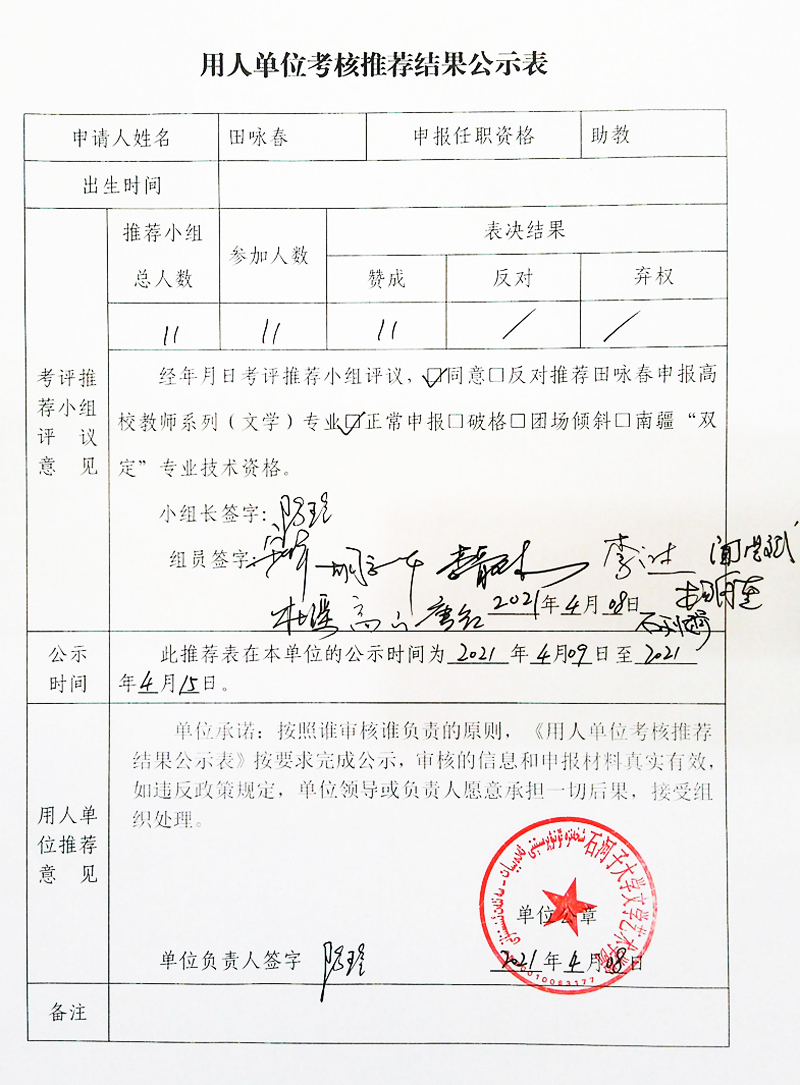 用人单位考核推荐结果公示表
申请人姓名 田咏春 申报任职资格 助教
出生时间
考评推荐小组评议意见
推荐小组总人数 参加人数 表决结果
赞成 反对 弃权
11 11 11 / /
经年月日考评推荐小组评议，☑同意□反对推荐田咏春申报高
校教师系列（文学）专业☑正常申报□破格□团场倾斜□南疆“双
定”专业技术资格。
小组长签字：
组员签字：
2021年4月08日
公示时间
此推荐表在本单位的公示时间为2021年4月09日至2021
年4月15日。
用人单位推荐意见
单位承诺：按照谁审核谁负责的原则，《用人单位考核推荐
结果公示表》按要求完成公示，审核的信息和申报材料真实有效，
如违反政策规定，单位领导或负责人愿意承担一切后果，接受组
织处理。
石河子大学文学艺术学院
单位公章
单位负责人签字
2021年4月08日
备注